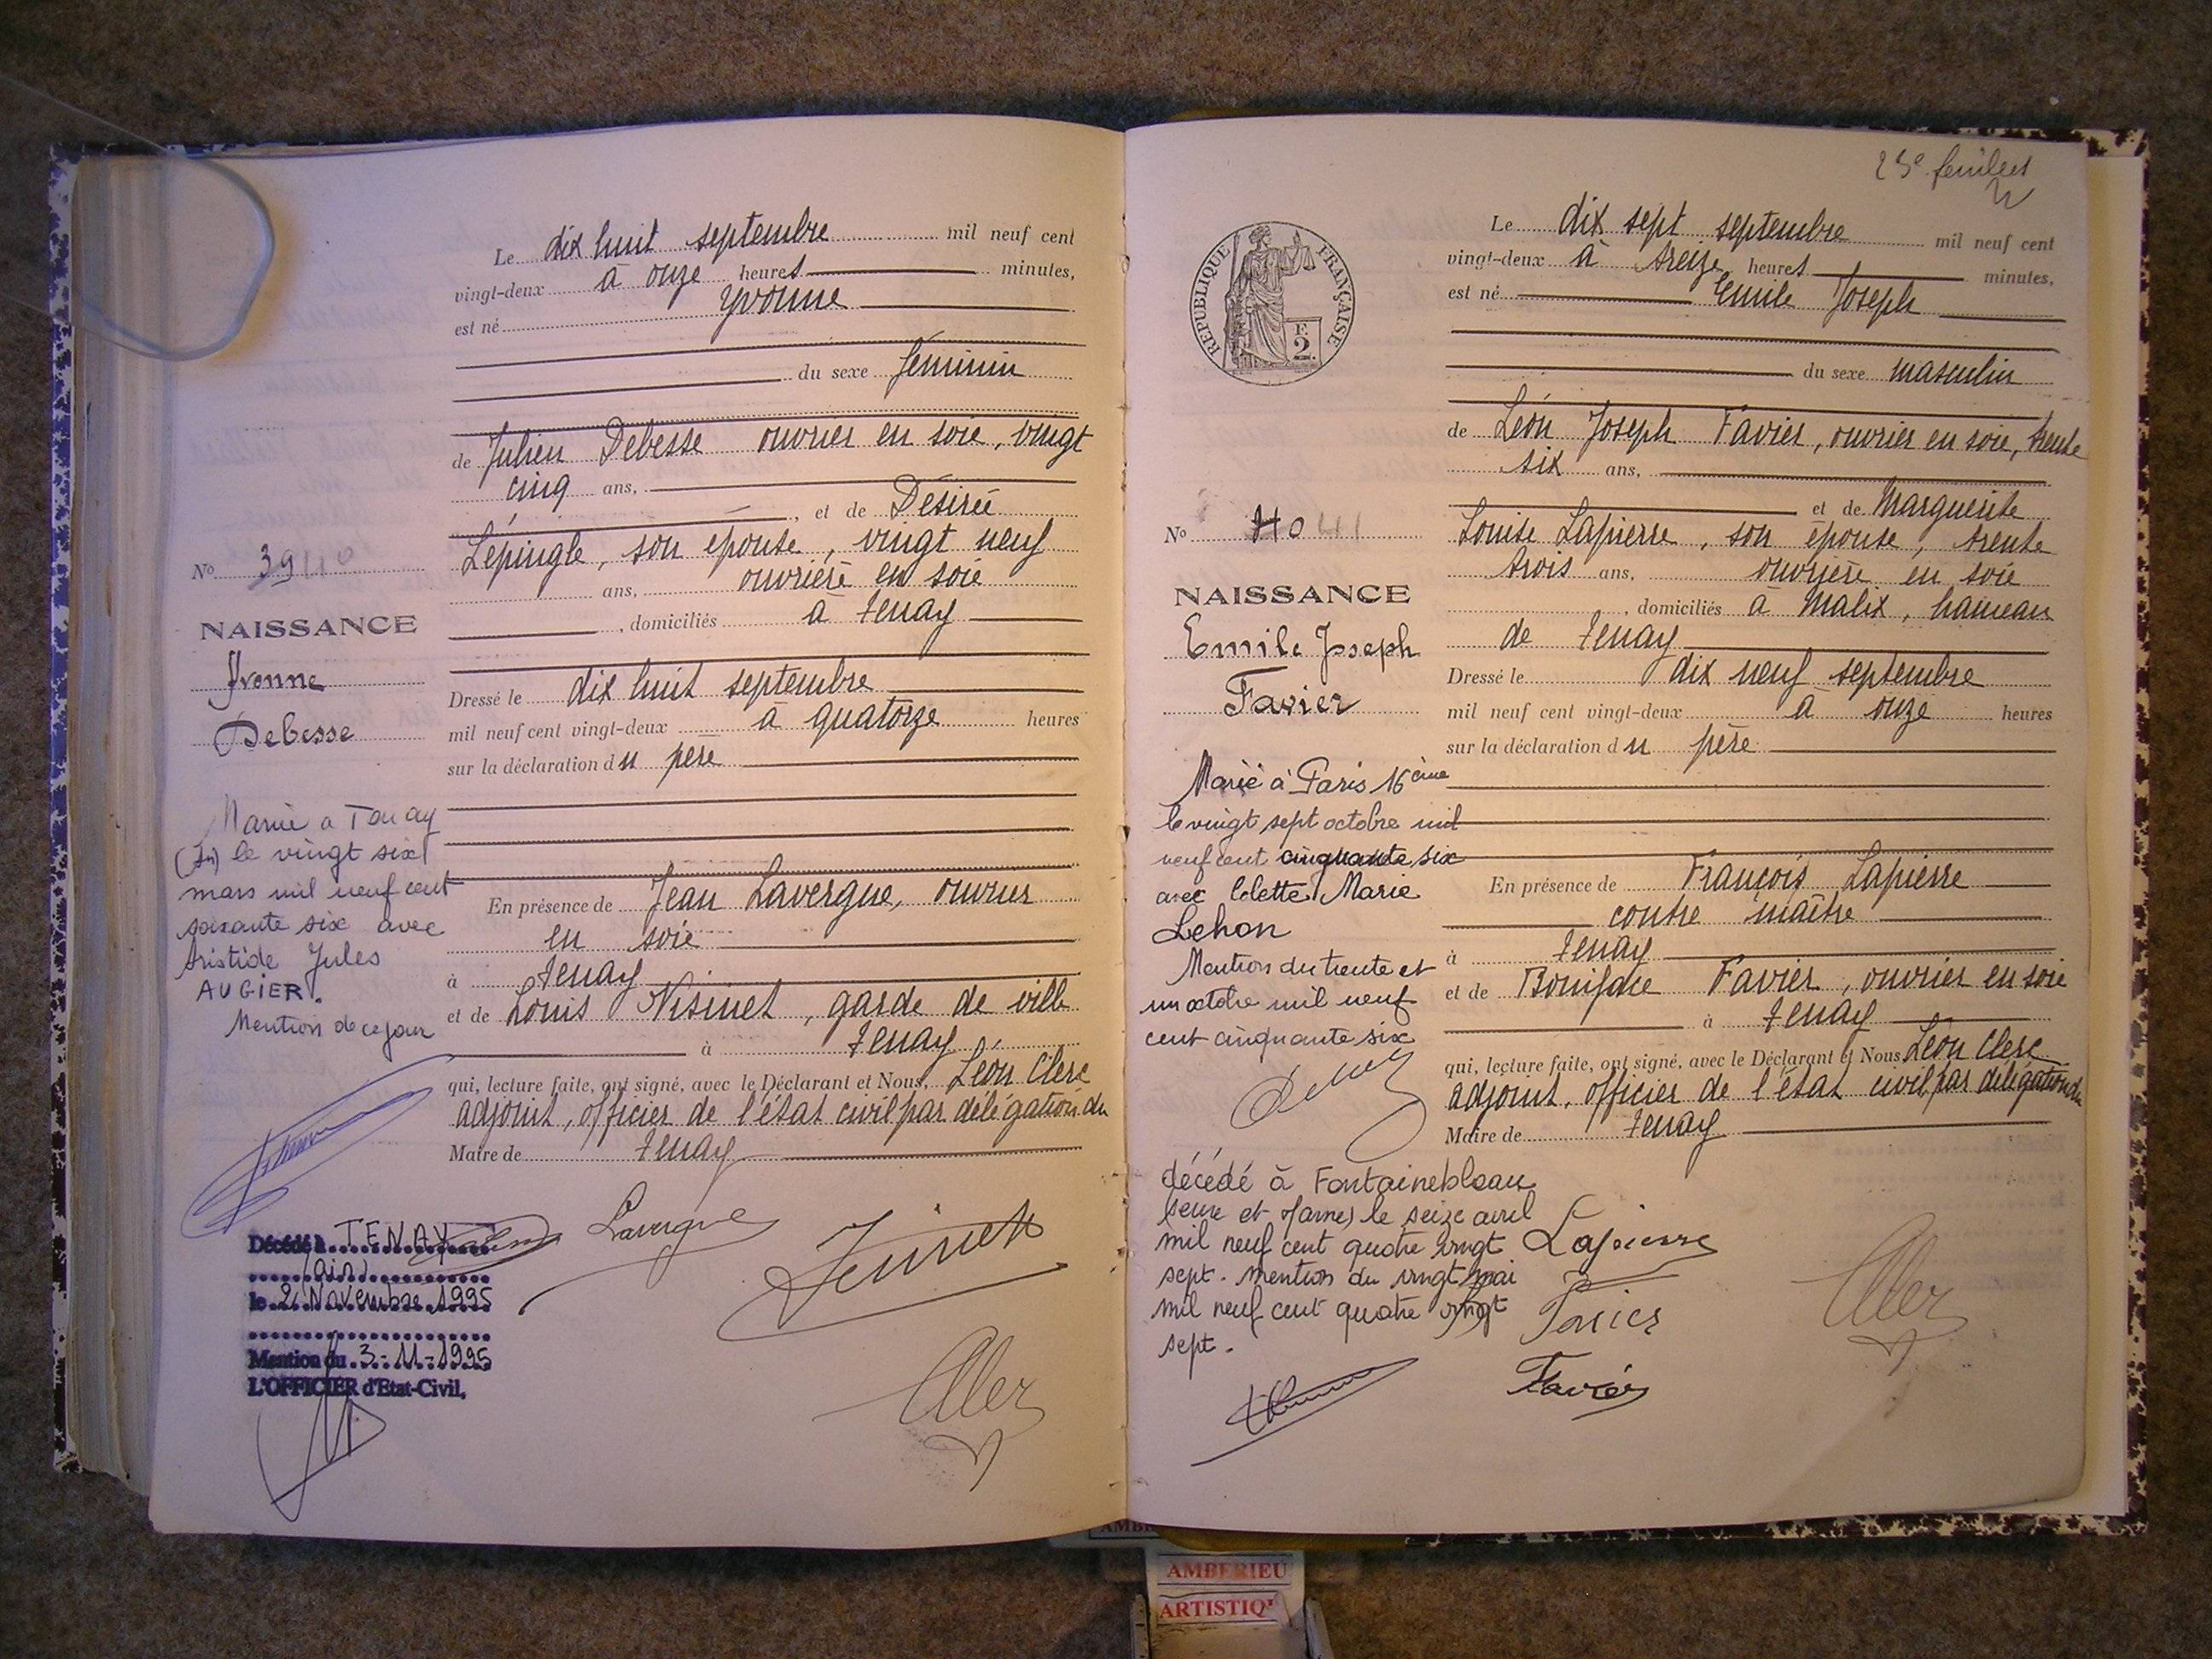 Le dix huit septembre mil neuf cent
vingt-deux à onze heures minutes,
est né Yvonne
du sexe féminin
de Julien Debesse ouvrier en soie, vingt
cinq ans,
, et de Désirée
Lépingle, son épouse, vingt neuf
ans, ouvrière en soie
, domiciliés à Tenay
Dressé le dix huit septembre
mil neuf cent vingt-deux à quatorze heures
sur la déclaration du père
En présence de Jean Lavergne, ouvrier
en soie
à Tenay
et de Louis , garde de ville
à Tenay
qui, lecture faite, ont signé, avec le Déclarant et Nous, Léon Clerc
adjoint, officier de l'état civil par délégation du
Maire de Tenay
No 39
NAISSANCE
Yvonne
Debesse
Mariée a Tenay
(Ain) le vingt six
mars mil neuf cent
soixante six avec
Aristide Jules
AUGIER.
Mention de ce jour
Décédé à TENAY
(ain)
le 2 Novembre 1995
Mention du 3-11-1995
L'OFFICIER d'Etat-Civil,
Lavergne
23e feuillet
REPUBLIQUE FRANÇAISE
F.
2.
Le dix sept septembre mil neuf cent
vingt-deux à treize heures minutes,
est né Emile Joseph
du sexe masculin
de Léon Joseph Favier, ouvrier en soie, trente
six ans,
et de Marguerite
Louise Lapierre, son épouse, trente
trois ans, ouvrière en soie
, domiciliés à Malix, hameau
de Tenay
Dressé le dix neuf septembre
mil neuf cent vingt-deux à onze heures
sur la déclaration du père
En présence de François Lapierre
contre maître
à Tenay
et de Boniface Favier, ouvrier en soie
à Tenay
qui, lecture faite, ont signé, avec le Déclarant et Nous Léon Clerc
adjoint, officier de l'état civil par délégation du
Maire de Tenay
No 40 41
NAISSANCE
Emile Joseph
Favier
Marié à Paris 16ème
le vingt sept octobre mil
neuf cent cinquante six
avec Colette Marie
Lehon
Mention du trente et
un octobre mil neuf
cent cinquante six
décédé à Fontainebleau
(seine et Marne) le seize avril
mil neuf cent quatre vingt
sept. mention du vingt mai
mil neuf cent quatre vingt
sept.
Lapierre
Favier
Favier
AMBERIEU
ARTISTIQ